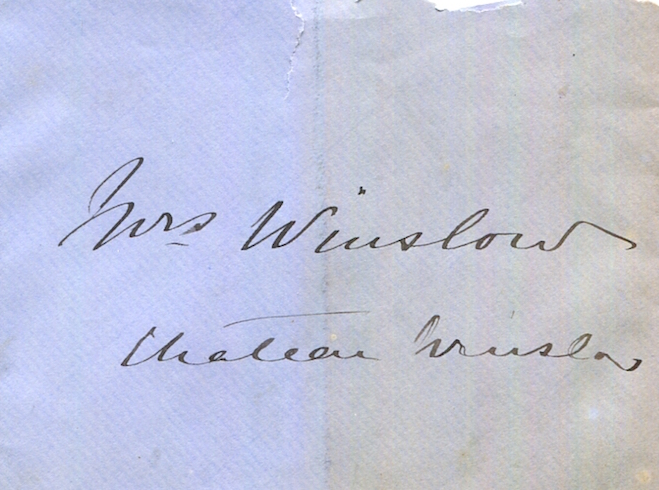 Mrs Winslow
Chateau Winslow